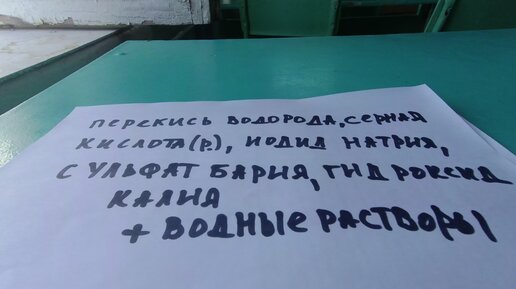 перекись водорода, серная
кислота(р), иодид натрия,
сульфат бария, гидроксид
калия
+ водные растворы